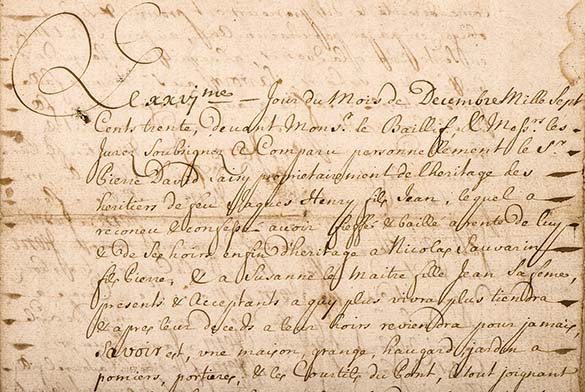 Le xxvj.me Jour du Mois de Decembre Mille Sept
Cents trente, devant Mons.r le Baillif, & Mess.rs les
Jurez Soubsignez A Comparu personnellement le S.r
Pierre David saisy proprietairement de l'heritage des
heritiers de feu Jaques Henry fils Jean, lequel a
reconeu & confessé avoir fieffé & baillé a rente de luy
& de ses hoirs en fin d'heritage a Nicolas Sauvarin
fils Pierre, & a Susanne le Maitre fille Jean sa feme,
presents & Acceptants a quy plus vivra plus tiendra
& apres leur deceds a leur hoirs reviendra pour jamais
Savoir est, une maison, grange, haugard, jardin a
pomiers, portieres, & les Courtils du Pont, a tout joignant